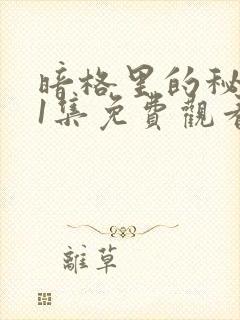 暗格里的秘
1集免費觀看
離草